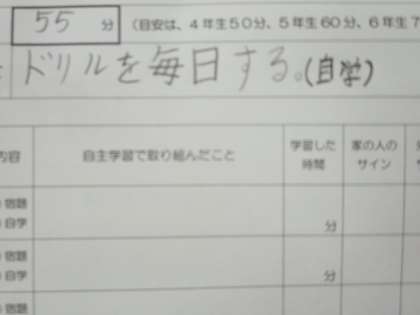 55 分 (目安は、4年生50分、5年生60分、6年生7
ドリルを毎日する。(自学)
内容 自主学習で取り組んだこと 学習した時間 家の人のサイン
宿題
自学 分
宿題
自学 分
宿題